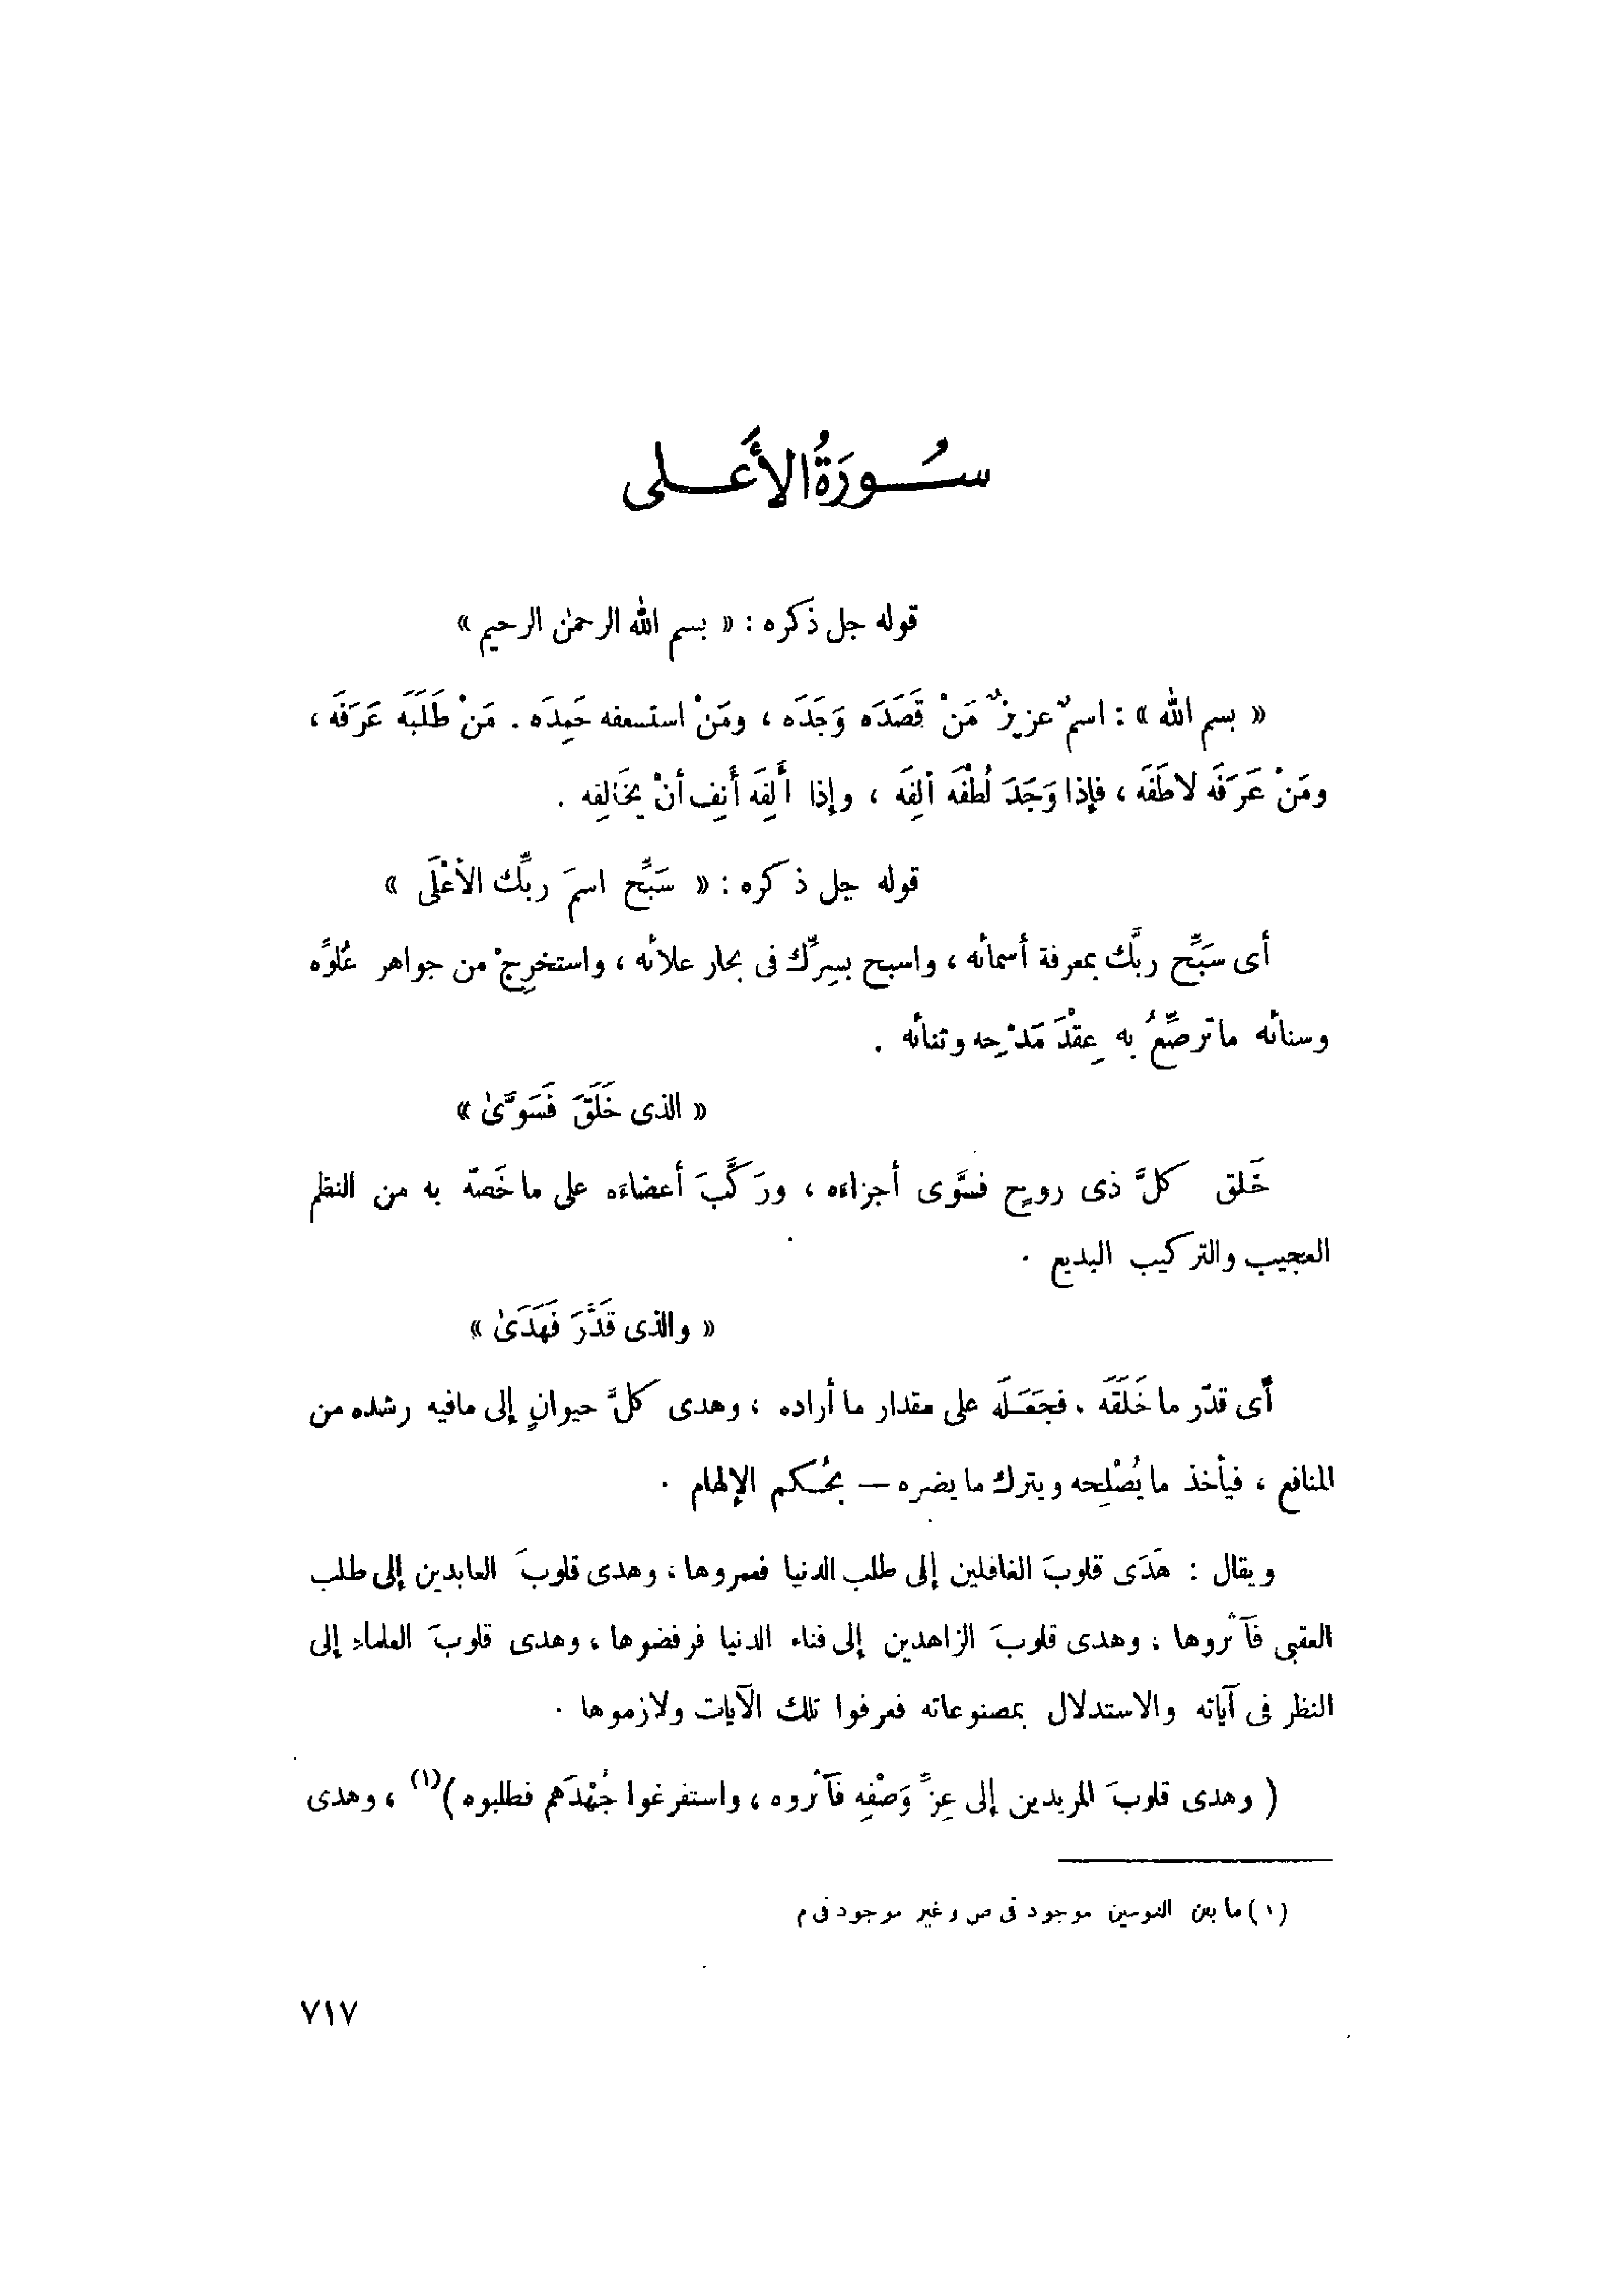 سُورَةُ الأَعلى
قوله جل ذكره : « بسم الله الرحمٰن الرحيم »
« بسم الله » : اسمٌ عزيزٌ مَنْ قَصَدَه وَجَدَه ، ومَنْ استسعفه حَمِدَه . مَنْ طَلَبَه عَرَفَه ،
ومَنْ عَرَفَه لاطَفَه ، فإذا وَجَدَ لُطْفَه ألِفَه ، وإذا أَلِفَه أَنِف أنْ يخَالِفه .
قوله جل ذكره : « سَبِّح اسمَ ربِّك الأعْلَى »
أى سَبِّح ربَّك بمعرفة أسمائه ، واسبح بسِرِّك فى بحار علائه ، واستخرِجْ من جواهر عُلوِّه
وسنائه ما ترصِّعُ به عِقْدَ مَدْحِه وثنائه .
« الذى خَلَقَ فَسَوَّىٰ »
خَلق كلَّ ذى روحٍ فسَوَّى أجزاءه ، ورَكَّبَ أعضاءَه على ما خَصّه به من النظم
العجيب والتركيب البديع .
« والذى قَدَّرَ فَهَدَىٰ »
أى قدّر ما خَلَقَه ، فجَعَلَه على مقدار ما أراده ، وهدى كلَّ حيوانٍ إلى مافيه رشده من
المنافع ، فيأخذ ما يُصْلِحه ويترك ما يضره — بحُكم الإلهام .
ويقال : هَدَى قلوبَ الغافلين إلى طلب الدنيا فعمروها ، وهدى قلوبَ العابدين إلى طلب
العقبى فآثروها ، وهدى قلوبَ الزاهدين إلى فناء الدنيا فرفضوها ، وهدى قلوبَ العلماء إلى
النظر فى آياته والاستدلال بمصنوعاته فعرفوا تلك الآيات ولازموها .
( وهدى قلوبَ المريدين إلى عِزِّ وَصْفِه فآثروه ، واستفرغوا جُهْدَهم فطلبوه )(١) ، وهدى
(١) ما بين القوسين موجود فى ص وغير موجود فى م
٧١٧